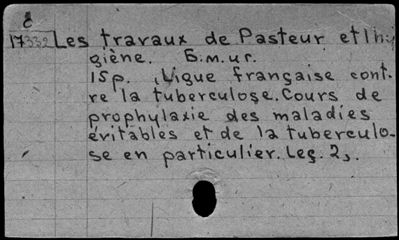 8
17332 Les travaux de Pasteur et l'hy
giène. Б.м.иг.
15p. (Ligue française cont
re la tuberculose. Cours de
prophylaxie des maladies
évitables et de la tuberculo-
se en particulier. Leç. 2).